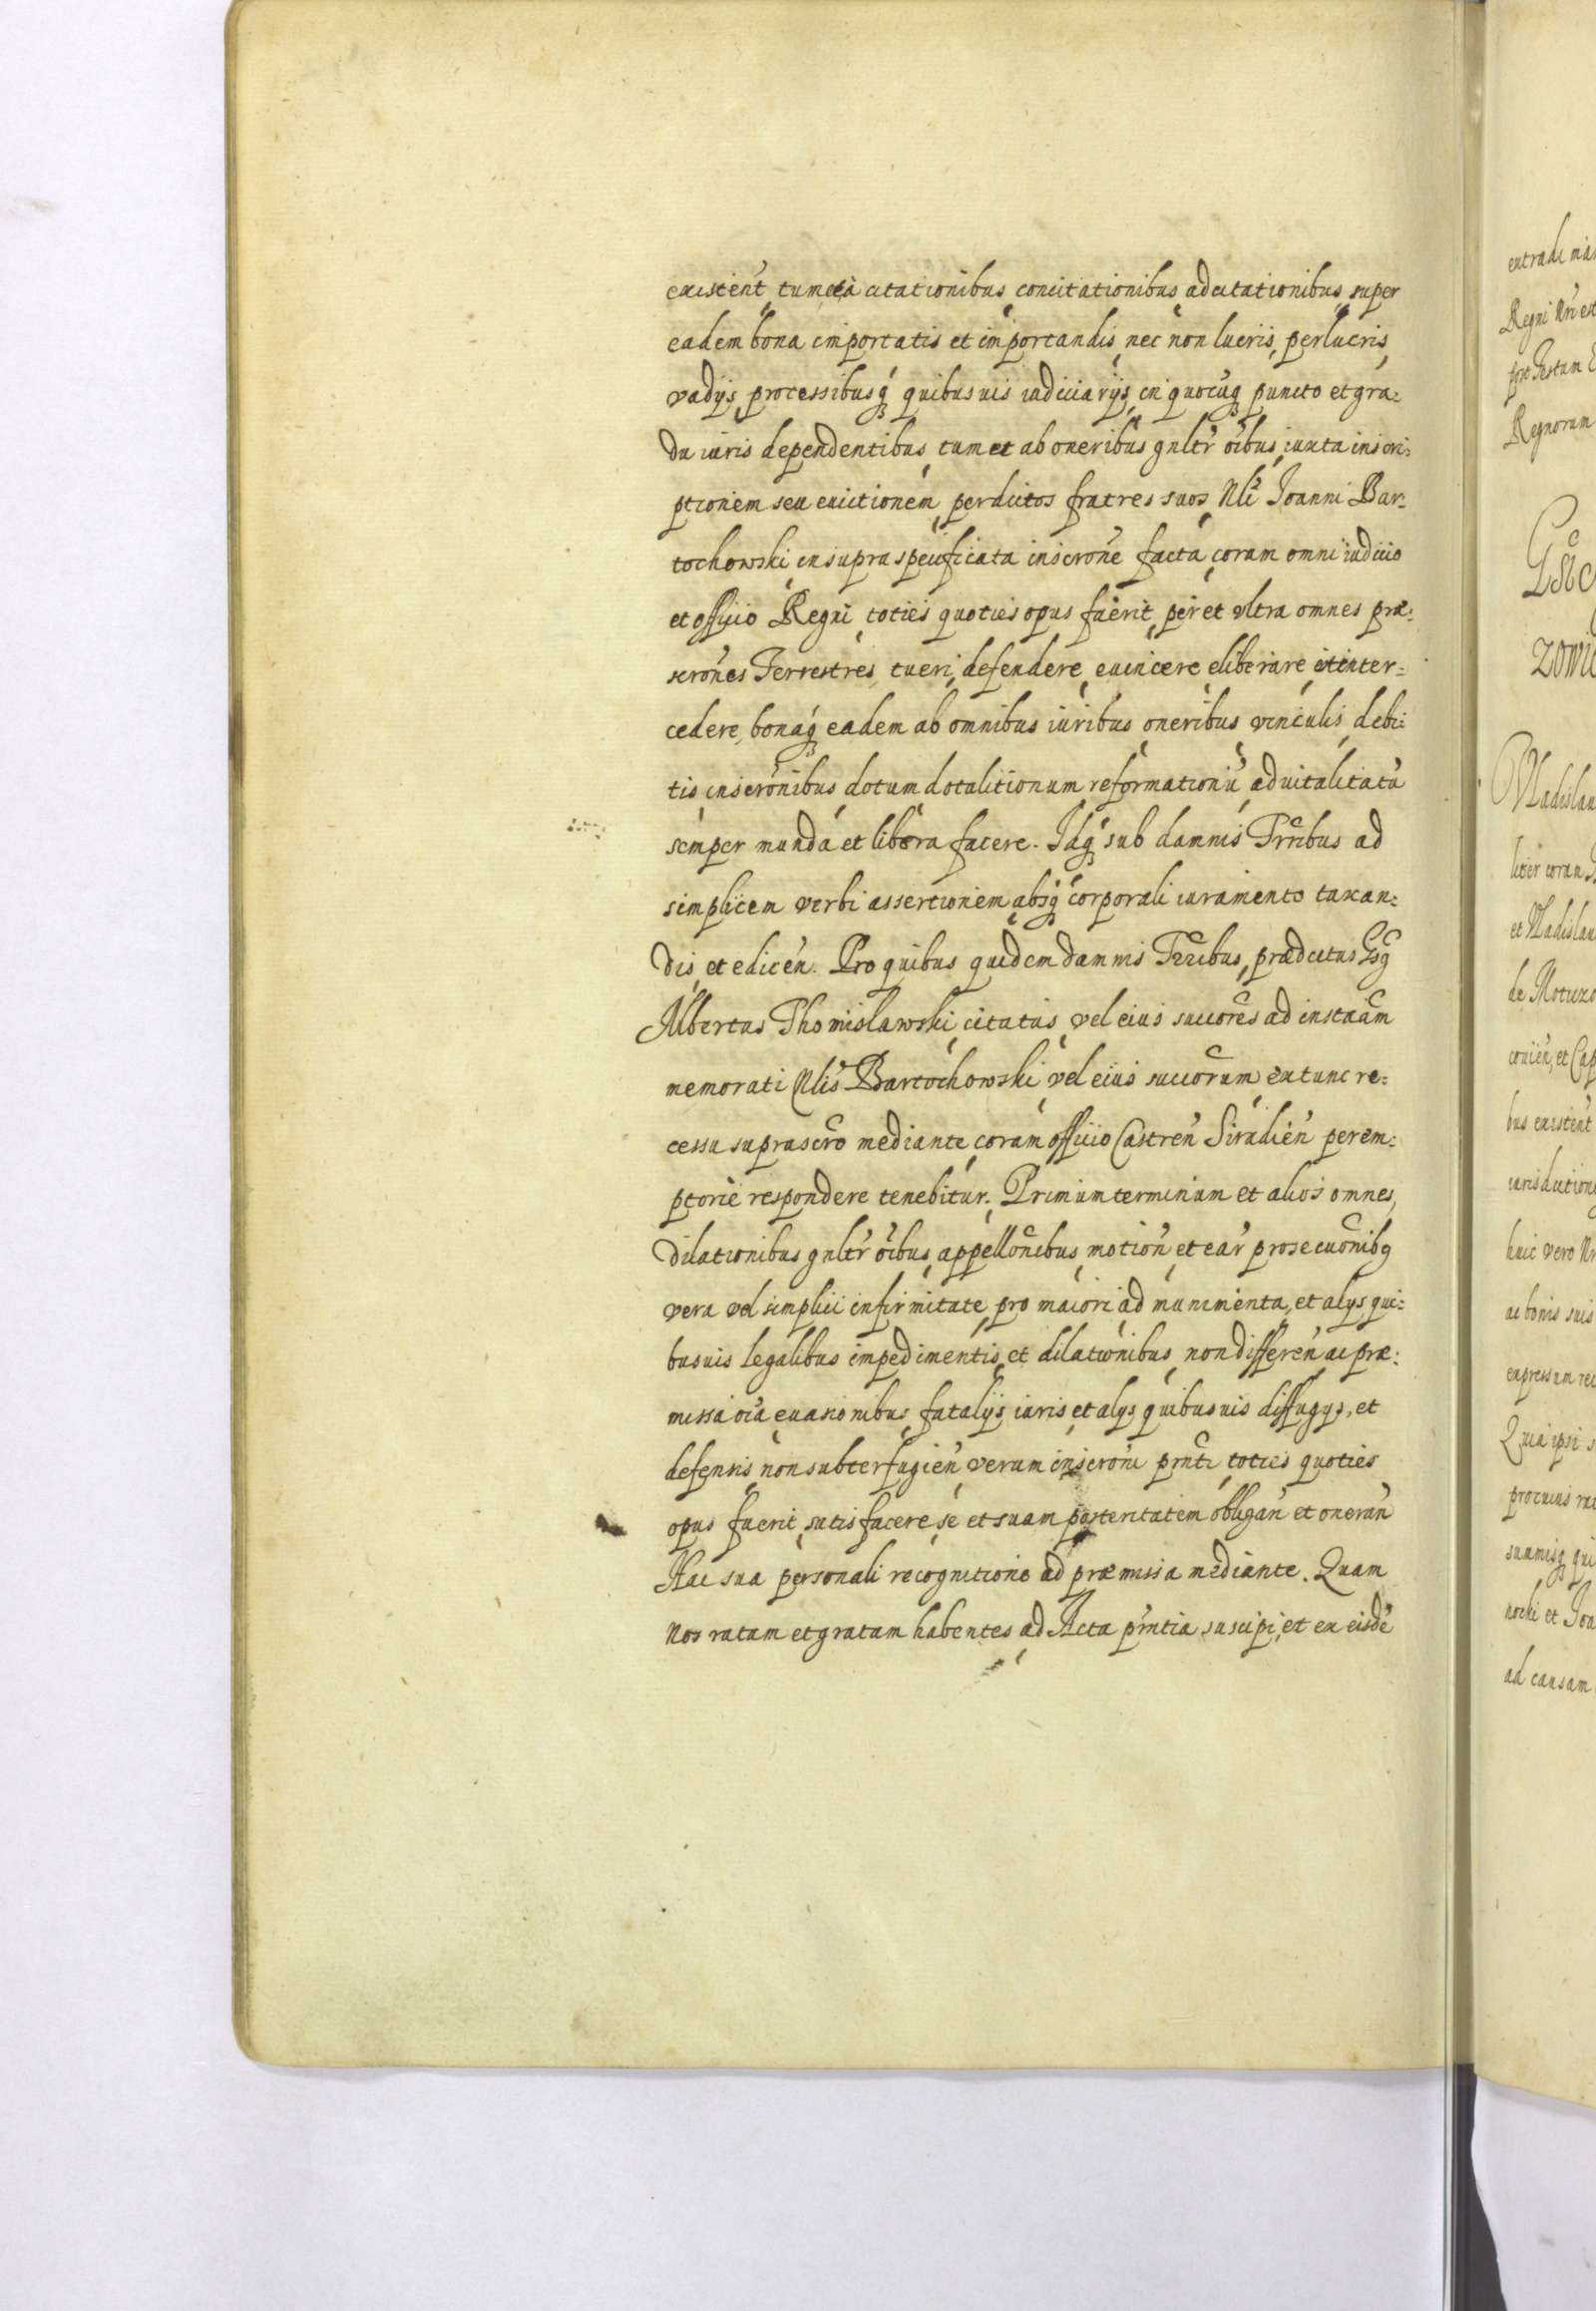 existent, tum et à citationibus, concitationibus, adcitationibus, super
eadem bona importatis et importandis, nec non lucris, perlucris,
vadijs, processibusq quibusuis iudiciarijs, in quocuq puncto et gra:
du iuris dependentibus, tum et ab oneribus gnltr oibus, iuxta inscri:
ptionem seu euictionem, per dictos fratres suos, Nli Joanni Bar:
tochowski, in supra specificata inscrone facta, coram omni iudicio
et officio Regni, toties quoties opus fuerit, per et vltra omnes præ:
scrones Terrestres, tueri, defendere, euincere, eliberare, et inter:
cedere, bonaq eadem ab omnibus iuribus, oneribus, vinculis, debi:
tis, inscronibus, dotum, dotalitionum, reformationu, aduitalitatu
semper munda et libera facere. Idq sub damnis Trribus ad
simplicem verbi assertionem, absq corporali iuramento taxan:
dis, et edicen. Pro quibus quidem damnis Trribus, prædictus Gsq
Albertus Thomislawski, citatus, vel eius succores ad instaam
memorati Nlis Bartochowski, vel eius succorum, extunc re:
cessu suprascro mediante, coram officio Castren Siradien perem:
ptorie respondere tenebitur. Primum terminum et alios omnes,
dilationibus gnltr oibus, appellonibus, motion, et ear prosecuonibq
vera vel simplici infirmitate, pro maiori, ad munimenta, et alys qui:
busuis legalibus impedimentis, et dilationibus, non differen ac præ:
missa oia, euasionibus, fatalijs, iuris, et alys quibusuis diffugys, et
defensis, non subterfugien, verum inscroni prnti, toties quoties
opus fuerit, satisfacere, se et suam posteritatem obligan et oneran
Hac sua personali recognitione ad præmissa mediante. Quam
Nos ratam et gratam habentes, ad Acta prntia suscipi, et ex eisde
extradi
Regni Nri
Regnorum
zowic
Vladislau
et Vladislau
bus existent
iurisdictione
huic vero
ac bonis suis
Quia ipsi
ad causam